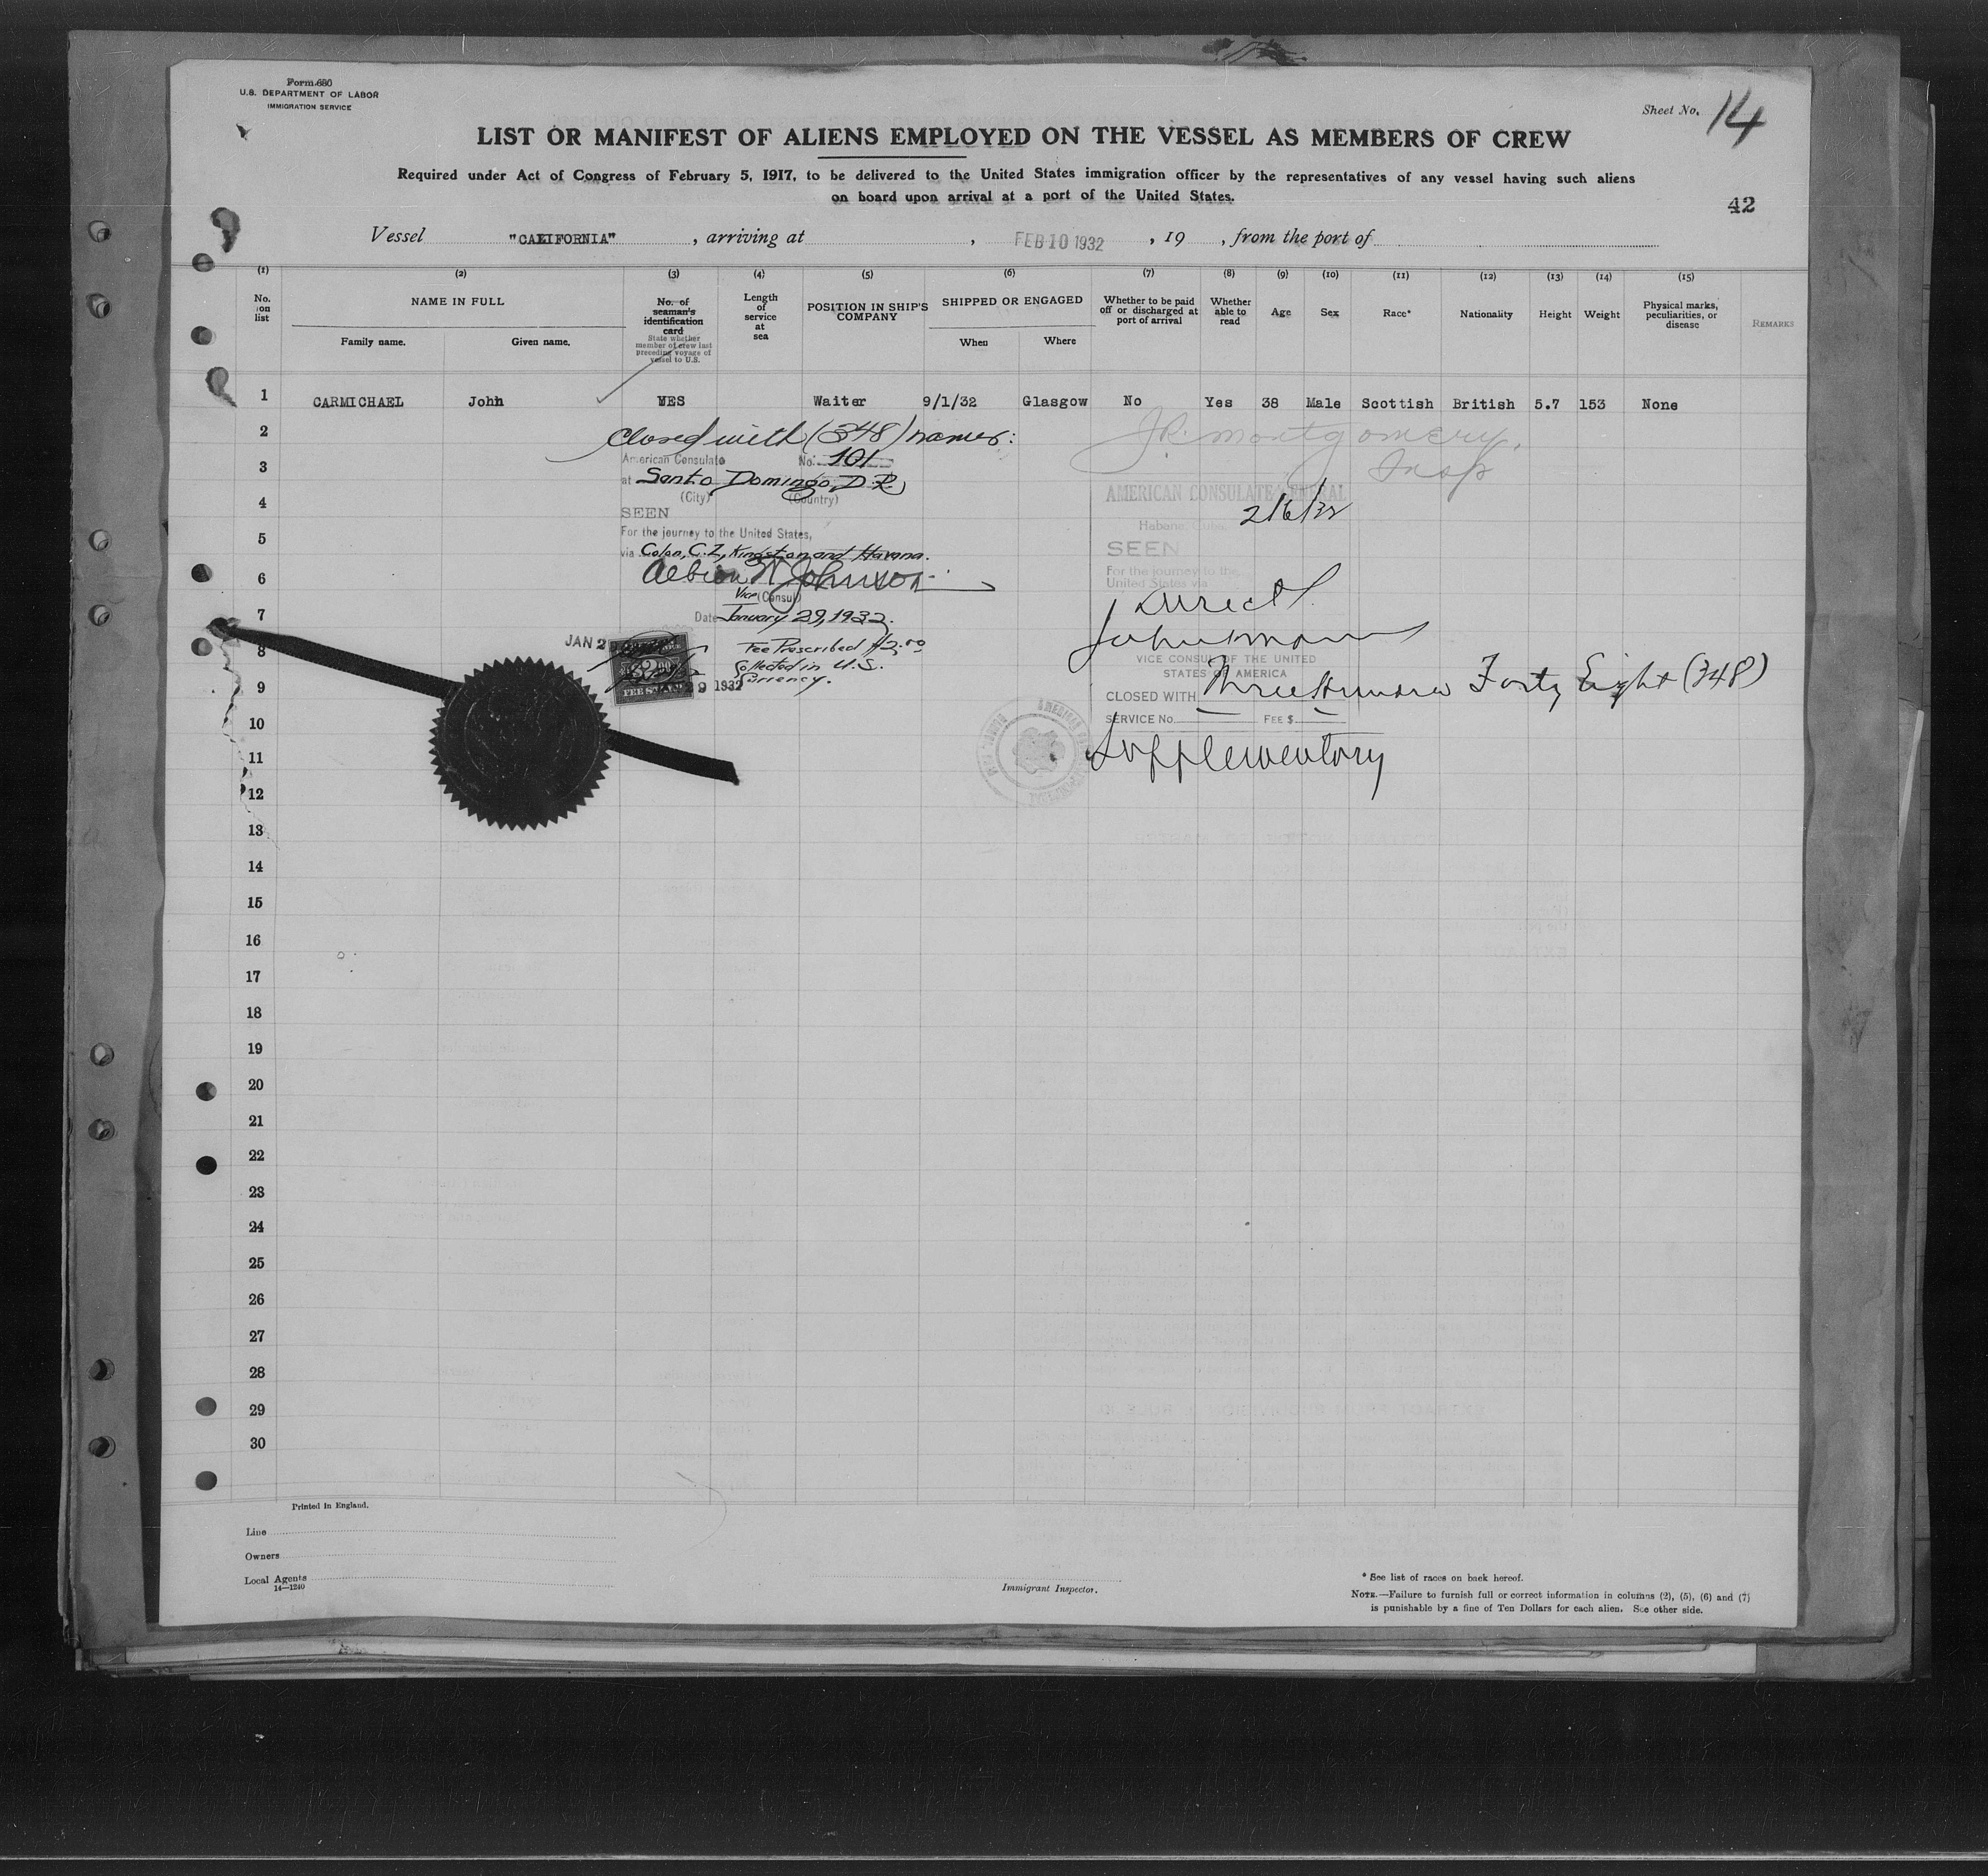 Form 680
U.S. DEPARTMENT OF LABOR
IMMIGRATION SERVICE
Sheet No. 14
LIST OR MANIFEST OF ALIENS EMPLOYED ON THE VESSEL AS MEMBERS OF CREW
Required under Act of Congress of February 5, 1917, to be delivered to the United States immigration officer by the representatives of any vessel having such aliens
on board upon arrival at a port of the United States.
42
Vessel "CALIFORNIA" , arriving at , FEB 10 1932 , 19 , from the port of
(1) (2) (3) (4) (5) (6) (7) (8) (9) (10) (11) (12) (13) (14) (15)
No. on list
NAME IN FULL
Family name. Given name.
No. of seaman's identification card
State whether member of crew last preceding voyage of vessel to U.S.
Length of service at sea
POSITION IN SHIP'S COMPANY
SHIPPED OR ENGAGED
When Where
Whether to be paid off or discharged at port of arrival
Whether able to read
Age
Sex
Race*
Nationality
Height
Weight
Physical marks, peculiarities, or disease
REMARKS
1 CARMICHAEL John YES Waiter 9/1/32 Glasgow No Yes 38 Male Scottish British 5.7 153 None
2
3
4
5
6
7
8
9
10
11
12
13
14
15
16
17
18
19
20
21
22
23
24
25
26
27
28
29
30
Closed with (348) names:
American Consulate No. 101
at Santo Domingo, D.R.
(City) (Country)
SEEN
For the journey to the United States,
via Colon, C.Z, Kingston and Havana.
Albion W Johnson
Vice (Consul)
Date January 29, 1932
Fee Prescribed $2.00
Collected in U.S.
Currency.
JAN 29
JAN 29 1932
J.R. Montgomery,
Insp
AMERICAN CONSULATE GENERAL
2/6/32
Habana, Cuba
SEEN
For the journey to the
United States via
direct
VICE CONSUL OF THE UNITED
STATES OF AMERICA
CLOSED WITH Three Hundred Forty Eight (348)
SERVICE No. — FEE $ —
Supplementary
Printed in England.
Line
Owners
Local Agents
14—1240
Immigrant Inspector.
* See list of races on back hereof.
NOTE.—Failure to furnish full or correct information in columns (2), (5), (6) and (7)
is punishable by a fine of Ten Dollars for each alien. See other side.